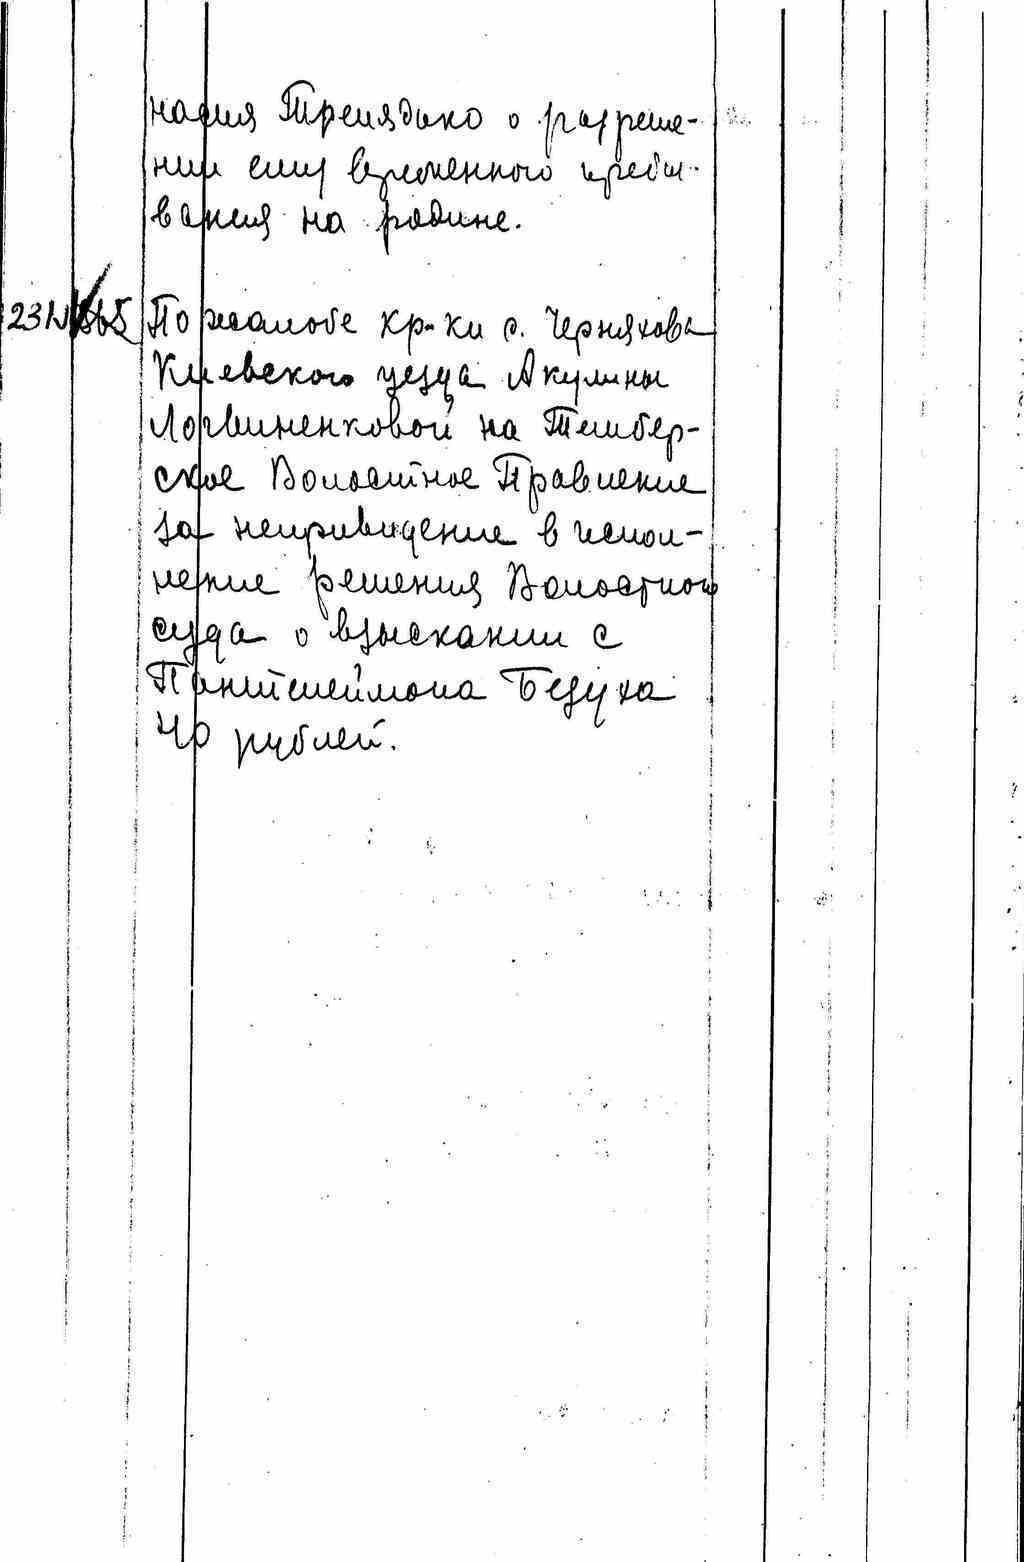 насия Тренядько о разреше-
нии ему временного пребы-
вания на родине.
По жалобе кр-ки с. Черняхова
Киевского уезда Акулины
Логвиненковой на
ское Волостное Правление
за неприведение в испол-
нение решения Волостного
суда о взыскании с
Пантелеймона Безуха
40 рублей.